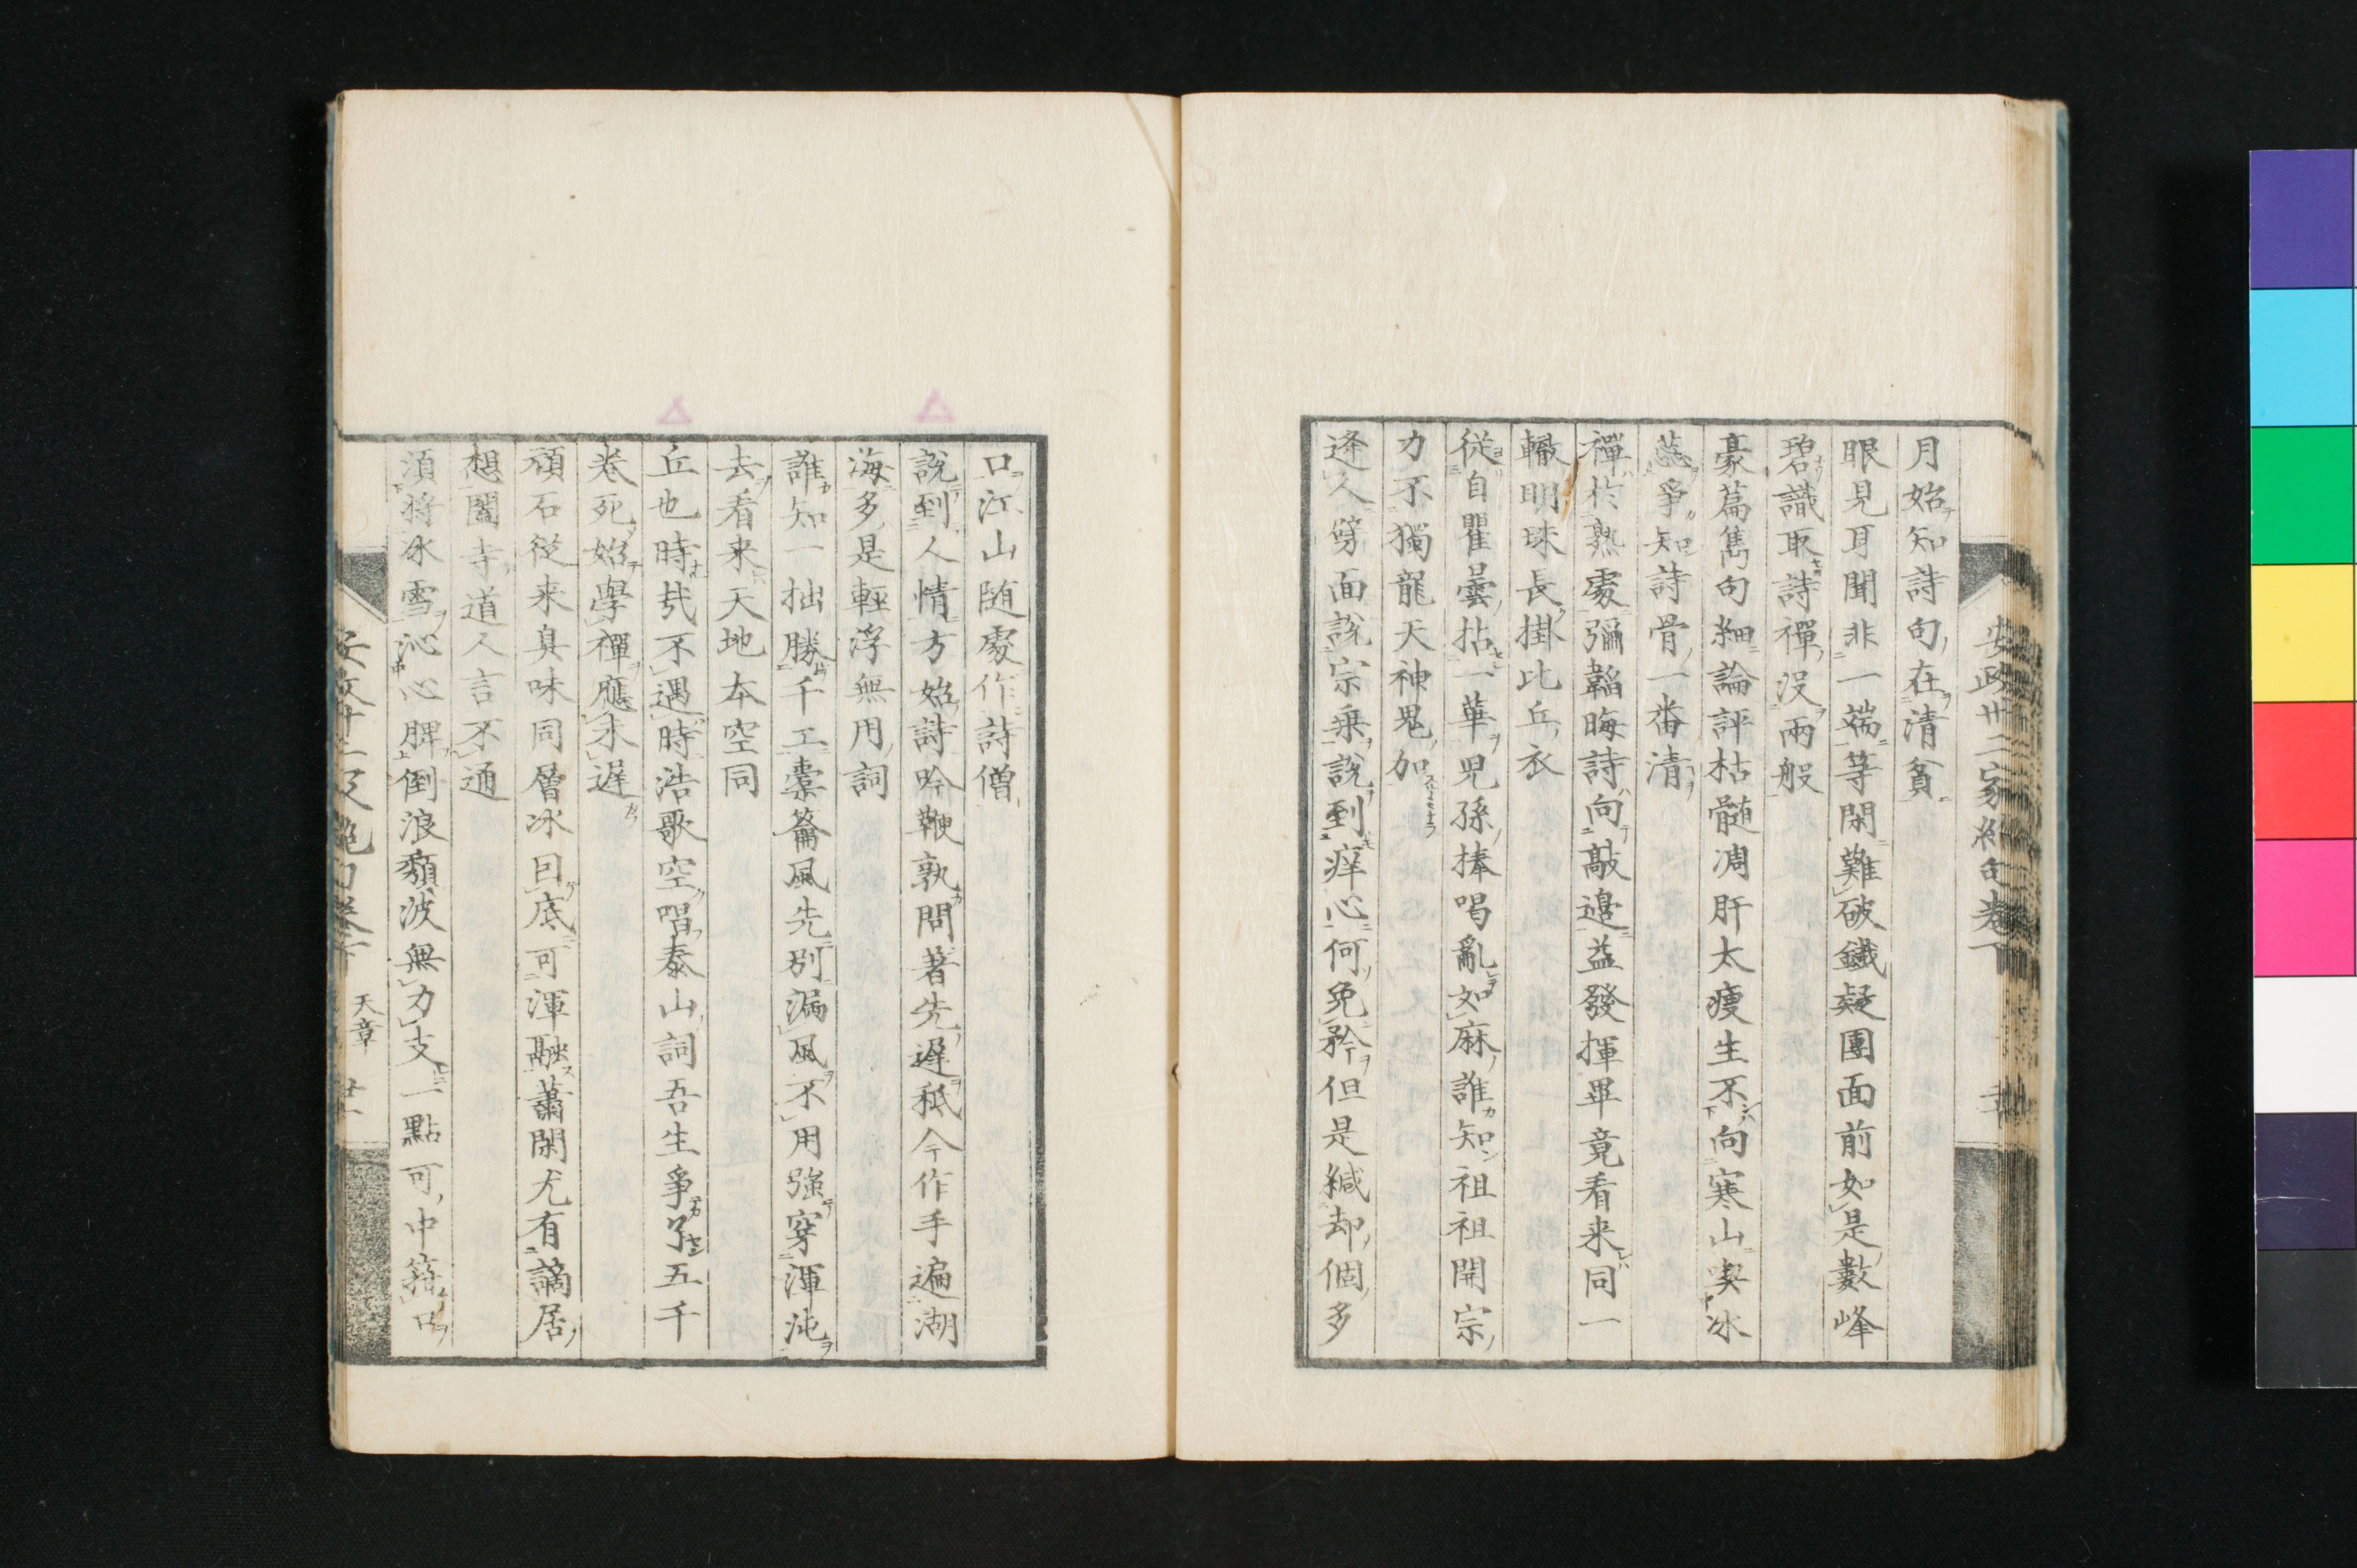 安政卅二家絶句卷下
月始知詩句在清貧
眼見耳聞非一端等閑難破鐵疑團面前如是數峰
碧識取詩禪沒兩般
豪篇雋句細論評枯髄凋肝太瘦生不向寒山喫冰
蕊爭知詩骨一番清
禪於熟處彌韜晦詩向敲邊益發揮畢竟看来同一
轍明珠長掛比丘衣
従自瞿曇拈一華児孫捧喝亂如麻誰知祖祖開宗
力不獨龍天神鬼加
逢人劈面説宗乗説到痒心何免矜但是緘却個多
口江山随處作詩僧
説到人情方始詩吟鞭孰問著先遲秪今作手遍湖
海多是輕浮無用詞
誰知一拙勝千工橐籥風先別漏風不用強穿渾沌
去看来天地本空同
丘也時哉不遇時浩歌空唱泰山詞吾生爭了五千
卷死始學禪應未遅
頑石従来臭味同層冰囙底可渾融蕭閑尤有謫居
想闔寺道人言不通
須将冰雪沁心脾倒浪頽波無力支一點可中箝口
天章